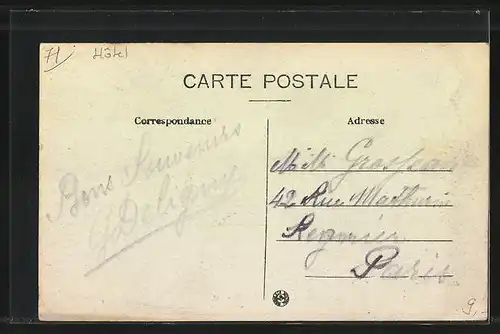 71 Hôtel
CARTE POSTALE
Correspondance
Adresse
Bons Souvenirs
Deligny
Melle
42 Rue Mathurin
Regnier
Paris
9,-